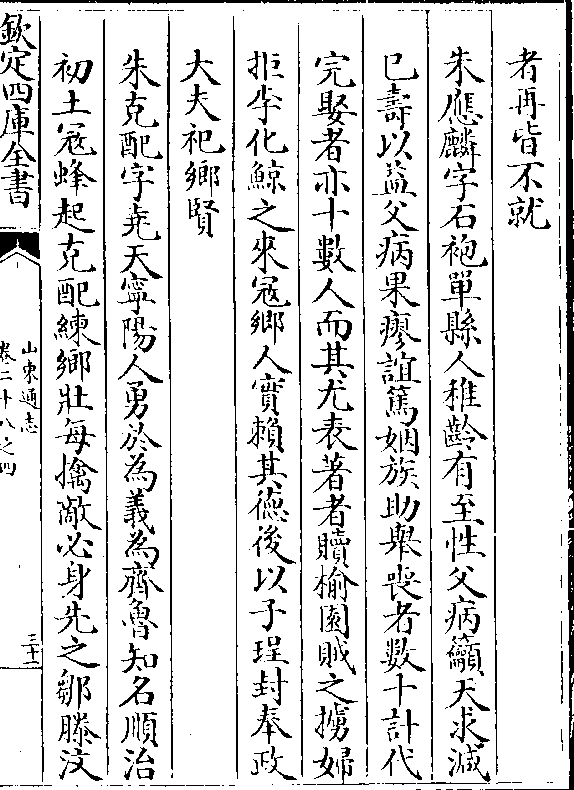 者再皆不就
朱應麟字石袍單縣人稚齡有至性父病籲天求減
已壽以益父病果瘳誼篤姻族助舉喪者數十計代
完娶者亦十數人而其尤表著者贖榆園賊之擄婦
拒李化鯨之來宼鄉人實賴其德後以子珵封奉政
大夫祀鄉賢
朱克配字堯天寧陽人勇於為義為齊魯知名順治
初土宼蜂起克配練鄉壯每擒敵必身先之鄒滕汶
欽定四庫全書
山東通志
卷二十八之四
三十二